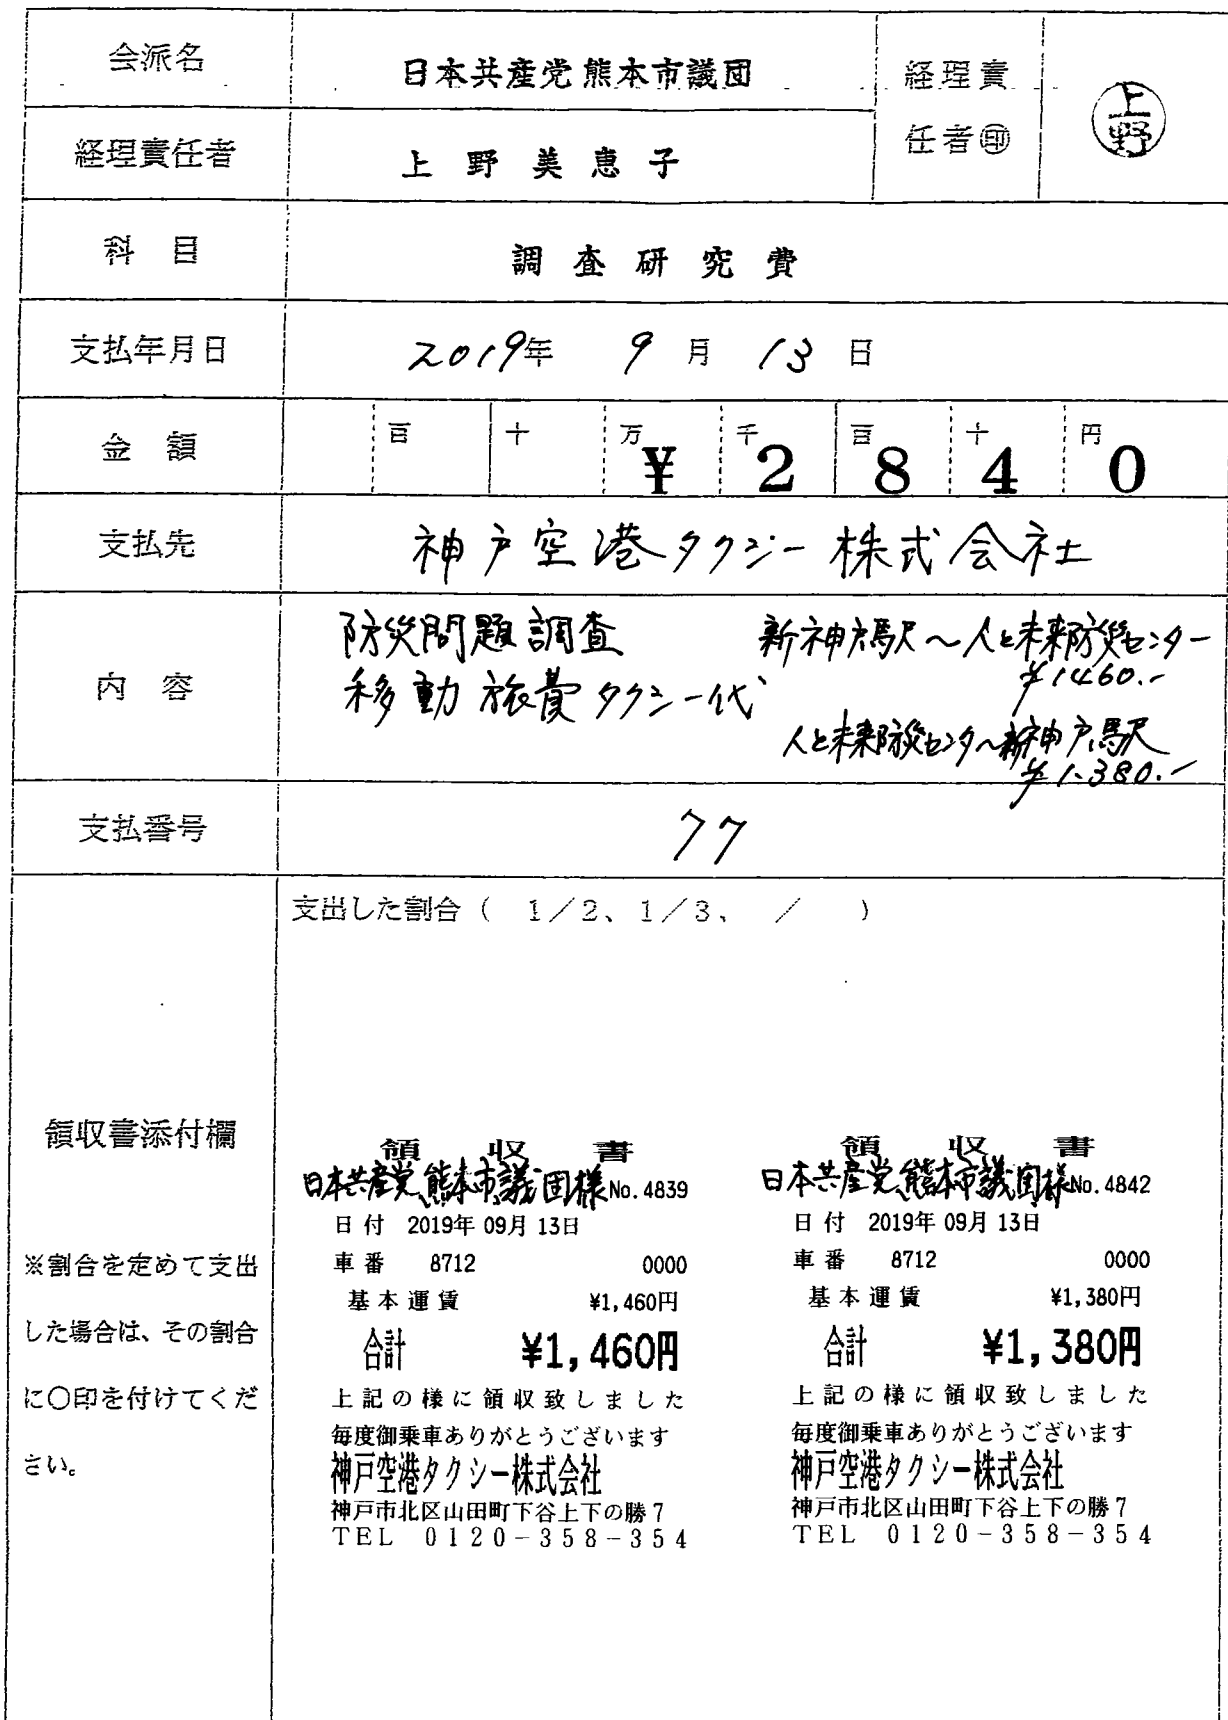 会派名 日本共産党熊本市議団 経理責任者㊞ 上野
経理責任者 上野美恵子
科目 調査研究費
支払年月日 2019年 9月 13日
金額 百 十 万 千 百 十 円 ¥2840
支払先 神戸空港タクシー株式会社
内容 防災問題調査
移動旅費タクシー代
新神戸駅～人と未来防災センター
¥1460.-
人と未来防災センター～新神戸駅
¥1.380.-
支払番号 77
支出した割合（ 1／2、1／3、 ／ ）
領収書添付欄
※割合を定めて支出
した場合は、その割合
に〇印を付けてくだ
さい。
領収書
日本共産党熊本市議団様 No.4839
日付 2019年09月13日
車番 8712 0000
基本運賃 ¥1,460円
合計 ¥1,460円
上記の様に領収致しました
毎度御乗車ありがとうございます
神戸空港タクシー株式会社
神戸市北区山田町下谷上下の勝7
TEL 0120-358-354
領収書
日本共産党熊本市議団様 No.4842
日付 2019年09月13日
車番 8712 0000
基本運賃 ¥1,380円
合計 ¥1,380円
上記の様に領収致しました
毎度御乗車ありがとうございます
神戸空港タクシー株式会社
神戸市北区山田町下谷上下の勝7
TEL 0120-358-354